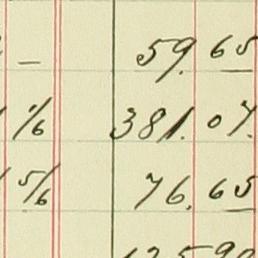 — 59.65
1/6 381.07.
5/6 76.65